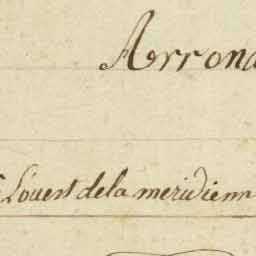 Arrond
L'ouest de la meridienn